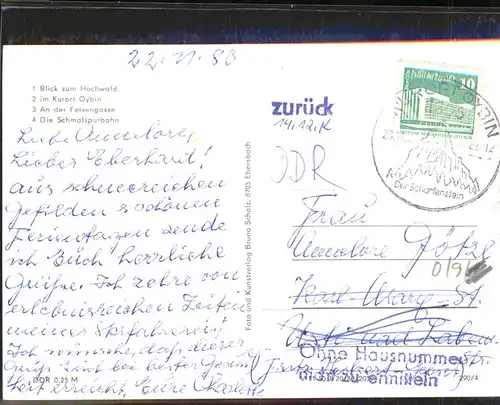 22.11.83
1 Blick zum Hochwald
2 Im Kurort Oybin
3 An der Felsengasse
4 Die Schmalspurbahn
Liebe Annelore,
Lieber Eberhard!
aus schneereichen
Gefilden & schönen
Ferientagen sende
ich Euch herzliche
Grüße. Ich zehre von
erlebnisreichen Zeiten
meiner
Ich wünsche, daß dieser
Gruß Euch bei bester Gesund-
heit erreicht. Eure
DDR 0,25 M
Foto und Kunstverlag Bruno Scholz, 8705 Ebersbach
zurück
14.12.K
10
KURORT OYBIN
Der Scharfenstein
DDR
Frau
Annelore Götze
Karl-Marx-St.
Ohne Hausnummer
nicht zu ermitteln